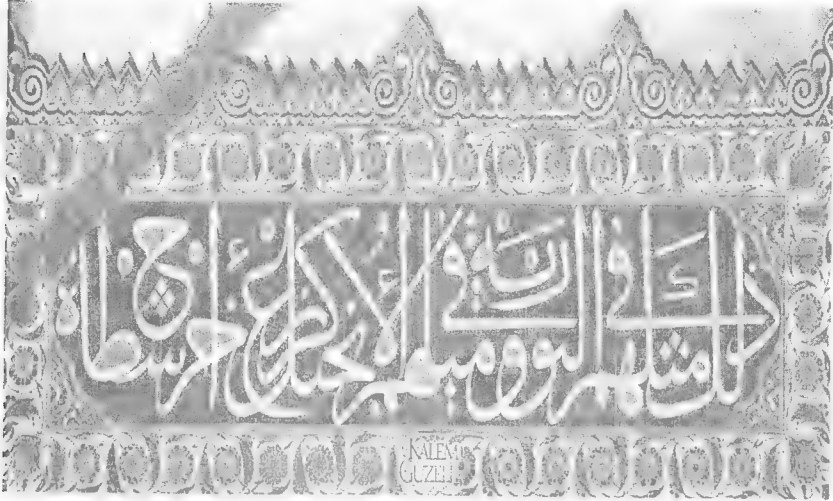 ذلك مثلهم في التورية ومثلهم في الانجيل كزرع اخرج شطاه
KALEM
GUZELI